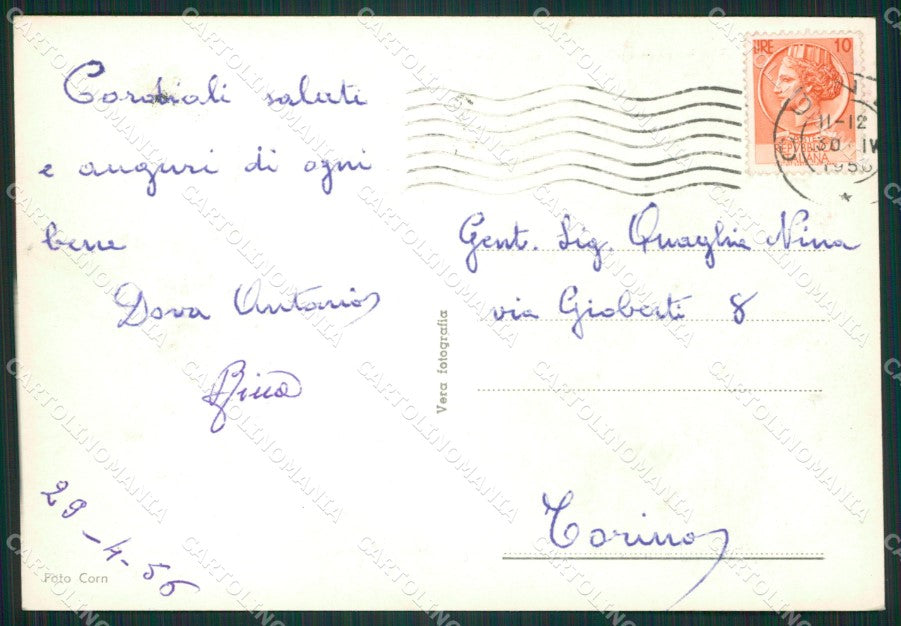 Cordiali saluti
e auguri di ogni
bene
Dova Antonio
Pina
29-4-56
Foto Corn
Vera fotografia
LIRE 10
REPUBBLICA
ITALIANA
11-12
30 IV
1956
Gent. Sig. Quaglia Nina
via Gioberti 8
Torino
CARTOLINOMANIA